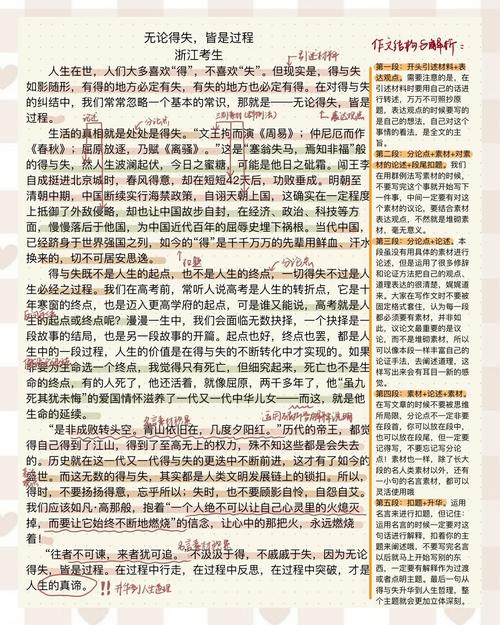 无论得失，皆是过程
浙江考生
人生在世，人们大多喜欢“得”，不喜欢“失”。但现实是，得与失
如影随形，有得的地方必定有失，有失的地方也必定有得。在对得与失
的纠结中，我们常常忽略一个基本的常识，那就是——无论得失，皆是
过程。
生活的真相就是处处是得失。“文王拘而演《周易》；仲尼厄而作
《春秋》；屈原放逐，乃赋《离骚》。”这是“塞翁失马，焉知非福”般
的得与失，然人生波澜起伏，今日之蜜糖，可能是他日之砒霜。闯王李
自成挺进北京城时，春风得意，却在短短42天后，功败垂成。明朝至
清朝中期，中国断续实行海禁政策，自诩天朝上国，这确实在一定程度
上抵御了外敌侵略，却也让中国故步自封，在经济、政治、科技等方
面，慢慢落后于他国，为中国近代百年的屈辱史埋下祸根。当代中国，
已经跻身于世界强国之列，如今的“得”是千千万万的先辈用鲜血、汗水
换来的，切不可居安思逸。
得与失既不是人生的起点，也不是人生的终点，一切得失不过是人
生必经之过程。我们在高考前，常听人说高考是人生的转折点，它是十
年寒窗的终点，也是迈入更高学府的起点，可是谁又能说，高考就是人
生的起点或终点呢？漫漫一生中，我们会面临无数抉择，一个抉择是一
段故事的结局，也是另一段故事的开篇。起点也好，终点也罢，都是人
生中的一段过程，人生的价值是在得与失的不断转化中才实现的。如果
即要为生命选一个终点，我觉得只有死亡，但细究起来，死亡也不是生
命的终点，有的人死了，他还活着，就像屈原，两千多年了，他“虽九
死其犹未悔”的爱国情怀滋养了一代又一代中华儿女——而这，就是他
生命的延续。
“是非成败转头空。青山依旧在，几度夕阳红。”历代的帝王，都觉
得自己得到了江山，得到了至高无上的权力，殊不知这些都是会失去
的。历史就在这一代又一代得与失的更迭中不断前进，这才有了如今的
盛世。而这无数的得与失，其实都是人类文明发展链上的锁扣。所以，
得时，不要扬扬得意，忘乎所以；失时，也不要顾影自怜，自怨自艾。
我们应该如凡·高那般，抱着“一个人绝不可以让自己心灵里的火熄灭
掉，而要让它始终不断地燃烧”的信念，让心中的那把火，永远燃烧
着！
“往者不可谏，来者犹可追。”不汲汲于得，不戚戚于失，因为无论
得失，皆是过程。在过程中行走，在过程中反思，在过程中突破，才是
人生的真谛。
作文结构与解析：
第一段：开头引述材料+表
达观点。需要注意的是，在
引述材料时要用自己的话进
行转述，万万不可照抄原
题，表达观点的时候要写的
是自己的想法，自己对这个
事情的看法，是全文的主
旨。
第二段：分论点+素材+对素
材的论述+段尾扣题。我们在
使用群例法写素材的时候，
不要写完这个事就开始写下
一件事，中间一定要有对这
个素材的议论，要结合素材
表达观点，不然就是堆砌素
材，毫无意义。
第三段：分论点+论述。本
段虽没有用具体的素材进行
论述，但是运用了很多修辞
和论证方法把自己的观点、
道理表达的很清楚，娓娓道
来。大家在写作文时不要被
固定格式套住，认为每一段
都必须要有素材，并非如
此，议论文最重要的是议
论，而不是堆砌素材，所以
可以像本段一样丰富自己的
论证手法，去阐述道理，这
样写出来会有耳目一新的感
觉。
第四段：素材+论述+素材。
在写文章的时候不要被思维
所局限，分论点不一定非要
在段首，你可以放在段中，
也可以放在段尾，但一定要
记得写，不要忘记写分论
点！素材也一样，除了长大
段的名人类素材以外，还有
一小句的名言素材，都可以
灵活使用哦
第五段：扣题+升华。运用
名言来进行扣题，但记住：
运用名言的时候一定要对这
句话进行解释，扣着你的主
题来阐述哦，不要写完名言
以后就马上开始写别的东
西，一定要有解释作为过渡
或者点明主题。最后一句从
得与失升华到人生哲理，整
个主题就会更加立体深刻。
引述材料
表达观点
分论点
扣题
分论点
名言素材
名言素材
!! 升华到人生道理